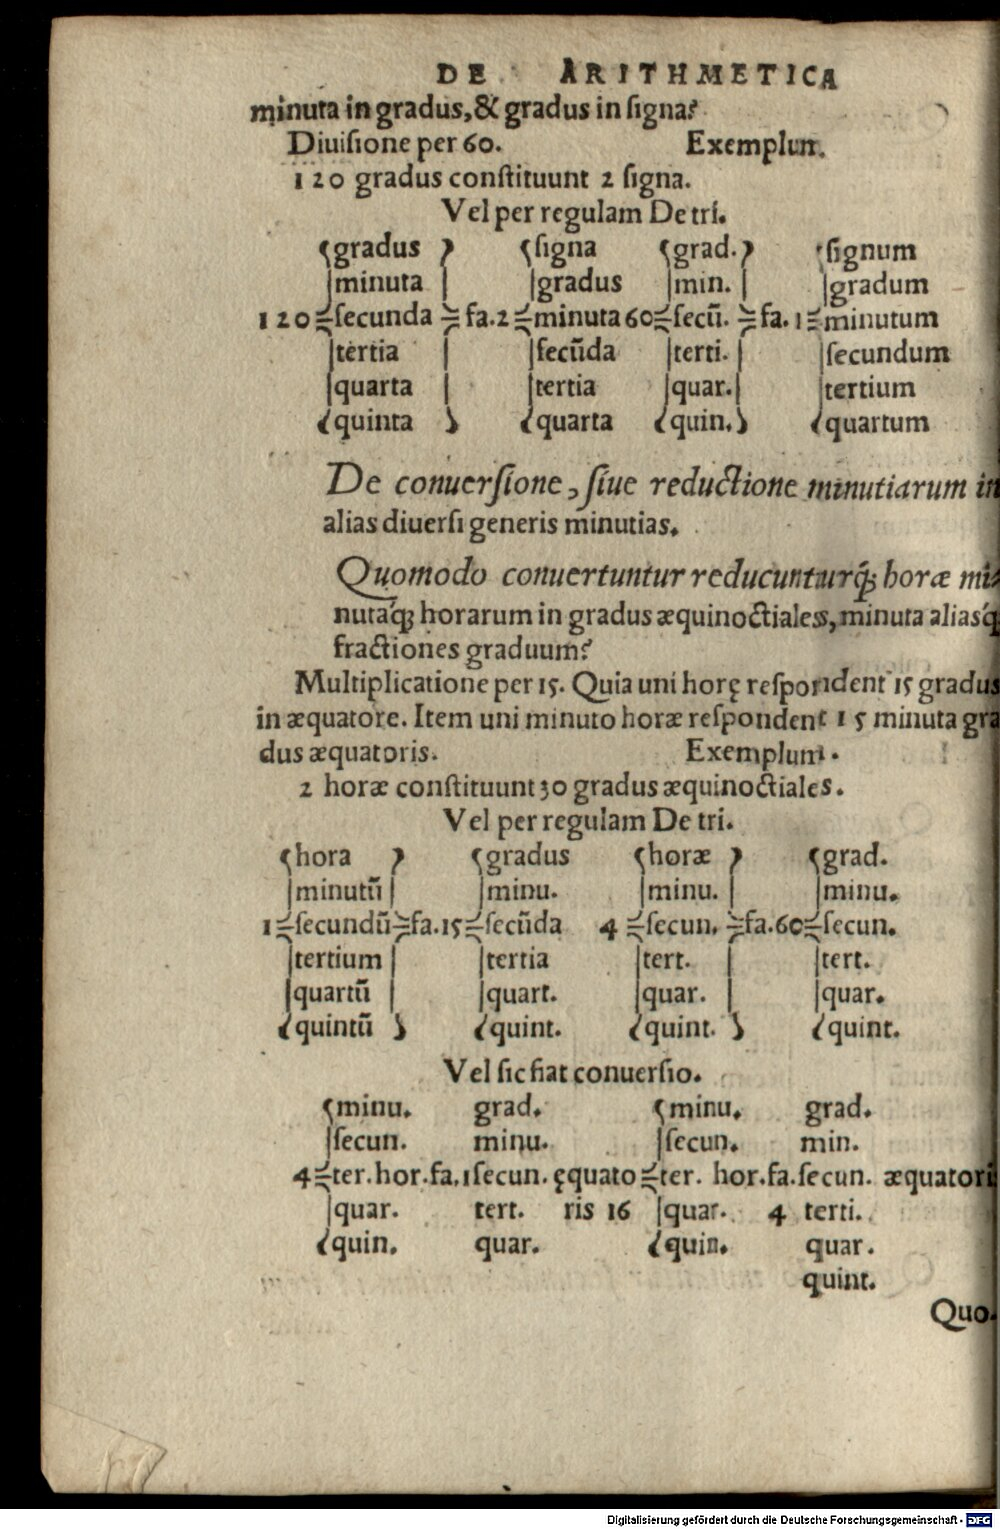 DE ARITHMETICA
minuta in gradus, & gradus in ſigna?
Diuiſione per 60. Exemplum.
120 gradus conſtituunt 2 ſigna.
Vel per regulam De tri.
gradus ſigna grad. ſignum
minuta gradus min. gradum
120 ſecunda fa. 2 minuta 60 ſecū. fa. 1 minutum
tertia ſecūda terti. ſecundum
quarta tertia quar. tertium
quinta quarta quin. quartum
De conuerſione, ſiue reductione minutiarum in
alias diuerſi generis minutias.
Quomodo conuertuntur reducunturq́; horæ mi-
nutaq́; horarum in gradus æquinoctiales, minuta aliasq́
fractiones graduum?
Multiplicatione per 15. Quia uni horę reſpondent 15 gradus
in æquatore. Item uni minuto horæ reſpondent 15 minuta gra
dus æquatoris. Exemplum.
2 horæ conſtituunt 30 gradus æquinoctiales.
Vel per regulam De tri.
hora gradus horæ grad.
minutū minu. minu. minu.
1 ſecundū fa. 15 ſecūda 4 ſecun. fa. 60 ſecun.
tertium tertia tert. tert.
quartū quart. quar. quar.
quintū quint. quint. quint.
Vel ſic fiat conuerſio.
minu. grad. minu. grad.
ſecun. minu. ſecun. min.
4 ter. hor. fa. 1 ſecun. ęquato ter. hor. fa. ſecun. æquatori
quar. tert. ris 16 quar. 4 terti.
quin. quar. quin. quar.
quint.
Quo-
Digitalisierung gefördert durch die Deutsche Forschungsgemeinschaft - DFG